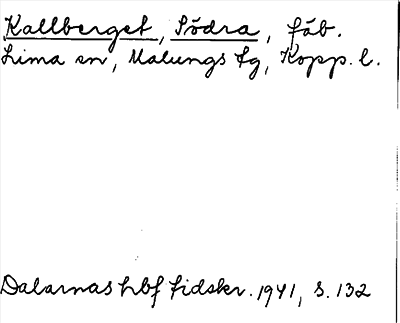 Kallberget, Södra, fäb.
Lima sn, Malungs tg, Kopp. l.
Dalarnas hbf tidskr. 1941, s. 132